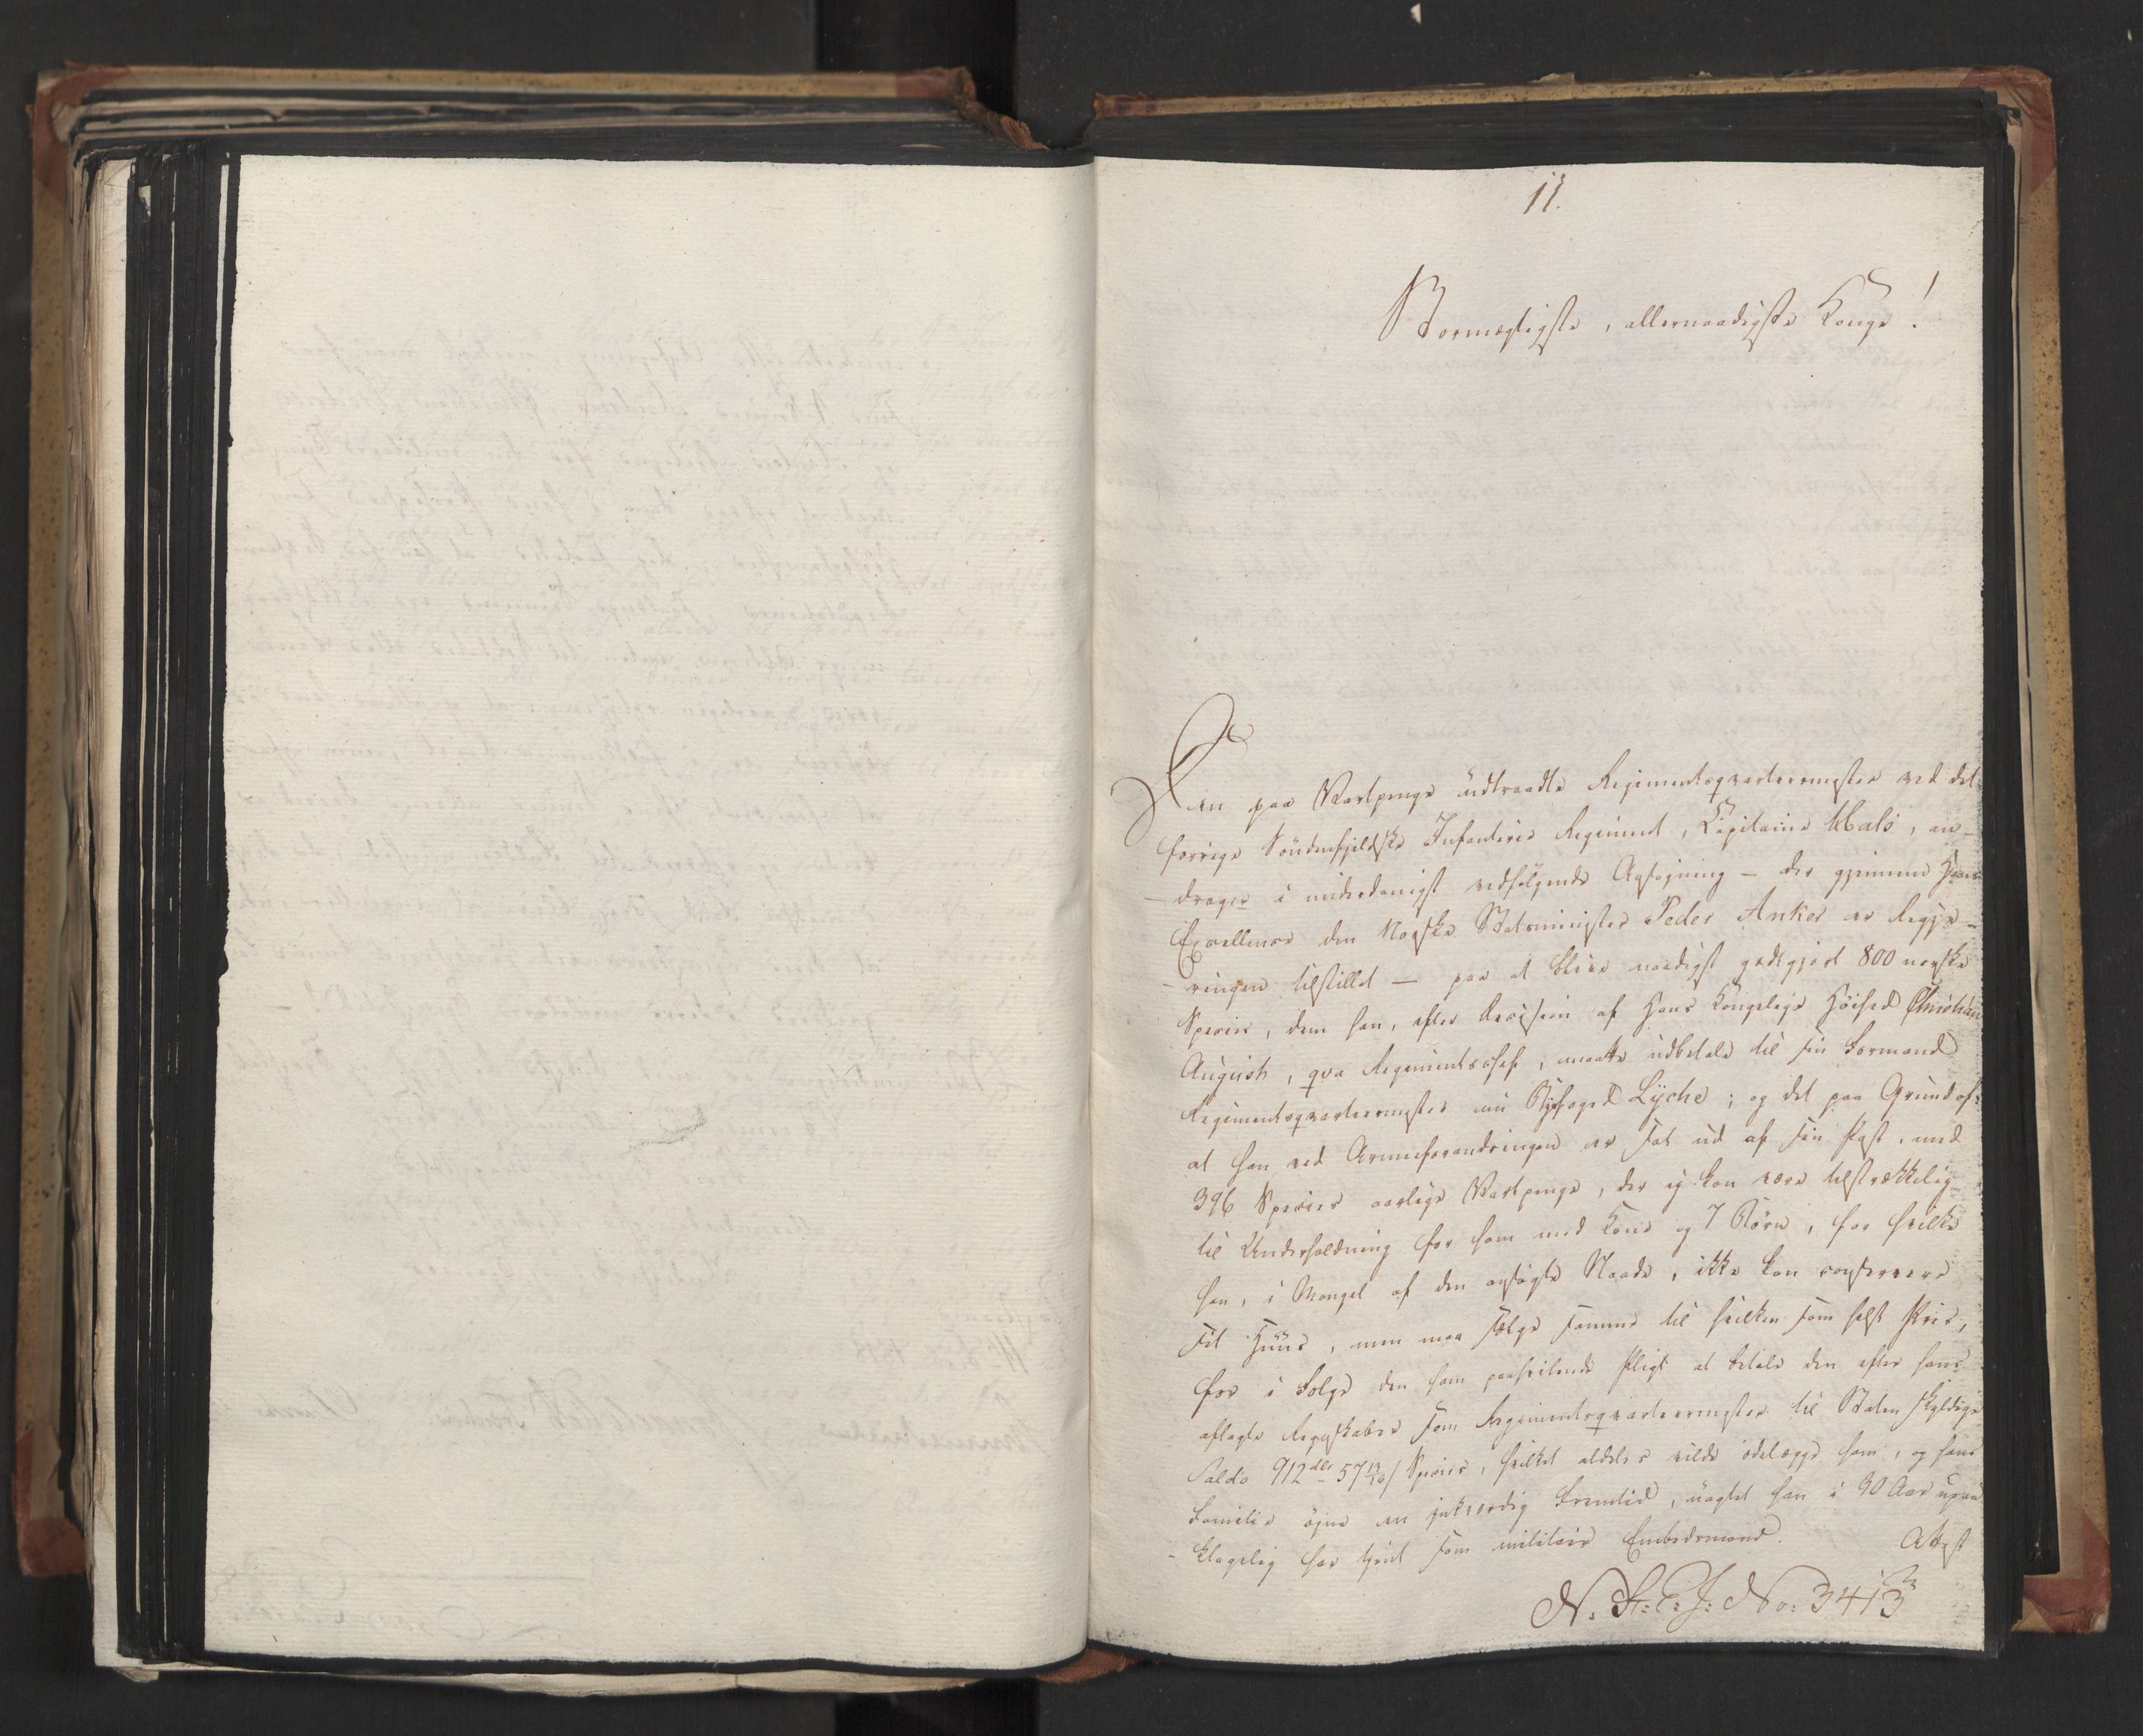 11.
Stormægtigste, allernaadigste Konge!
Den paa Vartpenge udtraadte Regimentsqvarteermester ved det
forrige Söndenfjeldske Infanterie Regiment, Capitaine Hals, an-
drager i underdanigst vedfölgende Ansögning – der gjennem Hans
Excellence den Norske Statsminister Peder Anker er Regje-
ringen tilstillet — paa at blive naadigst godtgjort 800 norske
Species, dem han, efter Decision af Hans Kongelige Höihed Christian
August, qva Regimentschef, maatte udbetale til sin Formand
Regimentsqvarteermester nu Byefoged Lyche; og det paa Grund af:
at han ved Armeeforandringen er sat ud af sin Post, med
396 Species aarlige Vartpenge, der ej kan være tilstrækkelig
til Underholdning for ham med Kone og 7 Börn, for hvilke
han, i Mangel af den ansögte Naade, ikke kan conservere
sit Huus, men maa sælge samme til hvilken som helst Priis,
for i Fölge den ham paahvilende Pligt at betale den efter hans
aflagte Regnskaber som Regimentsqvarteermester til Staten skyldige
Saldo 912 dlr 57 13/16 s Species, hvilket aldeles vilde ödelægge ham, og hans
Familie öjne en ynkværdig Fremtid, uagtet han i 30 Aar upaa-
klagelig har tjent som militair Embedsmand.
Attest
N. St: E. J: No: 3413